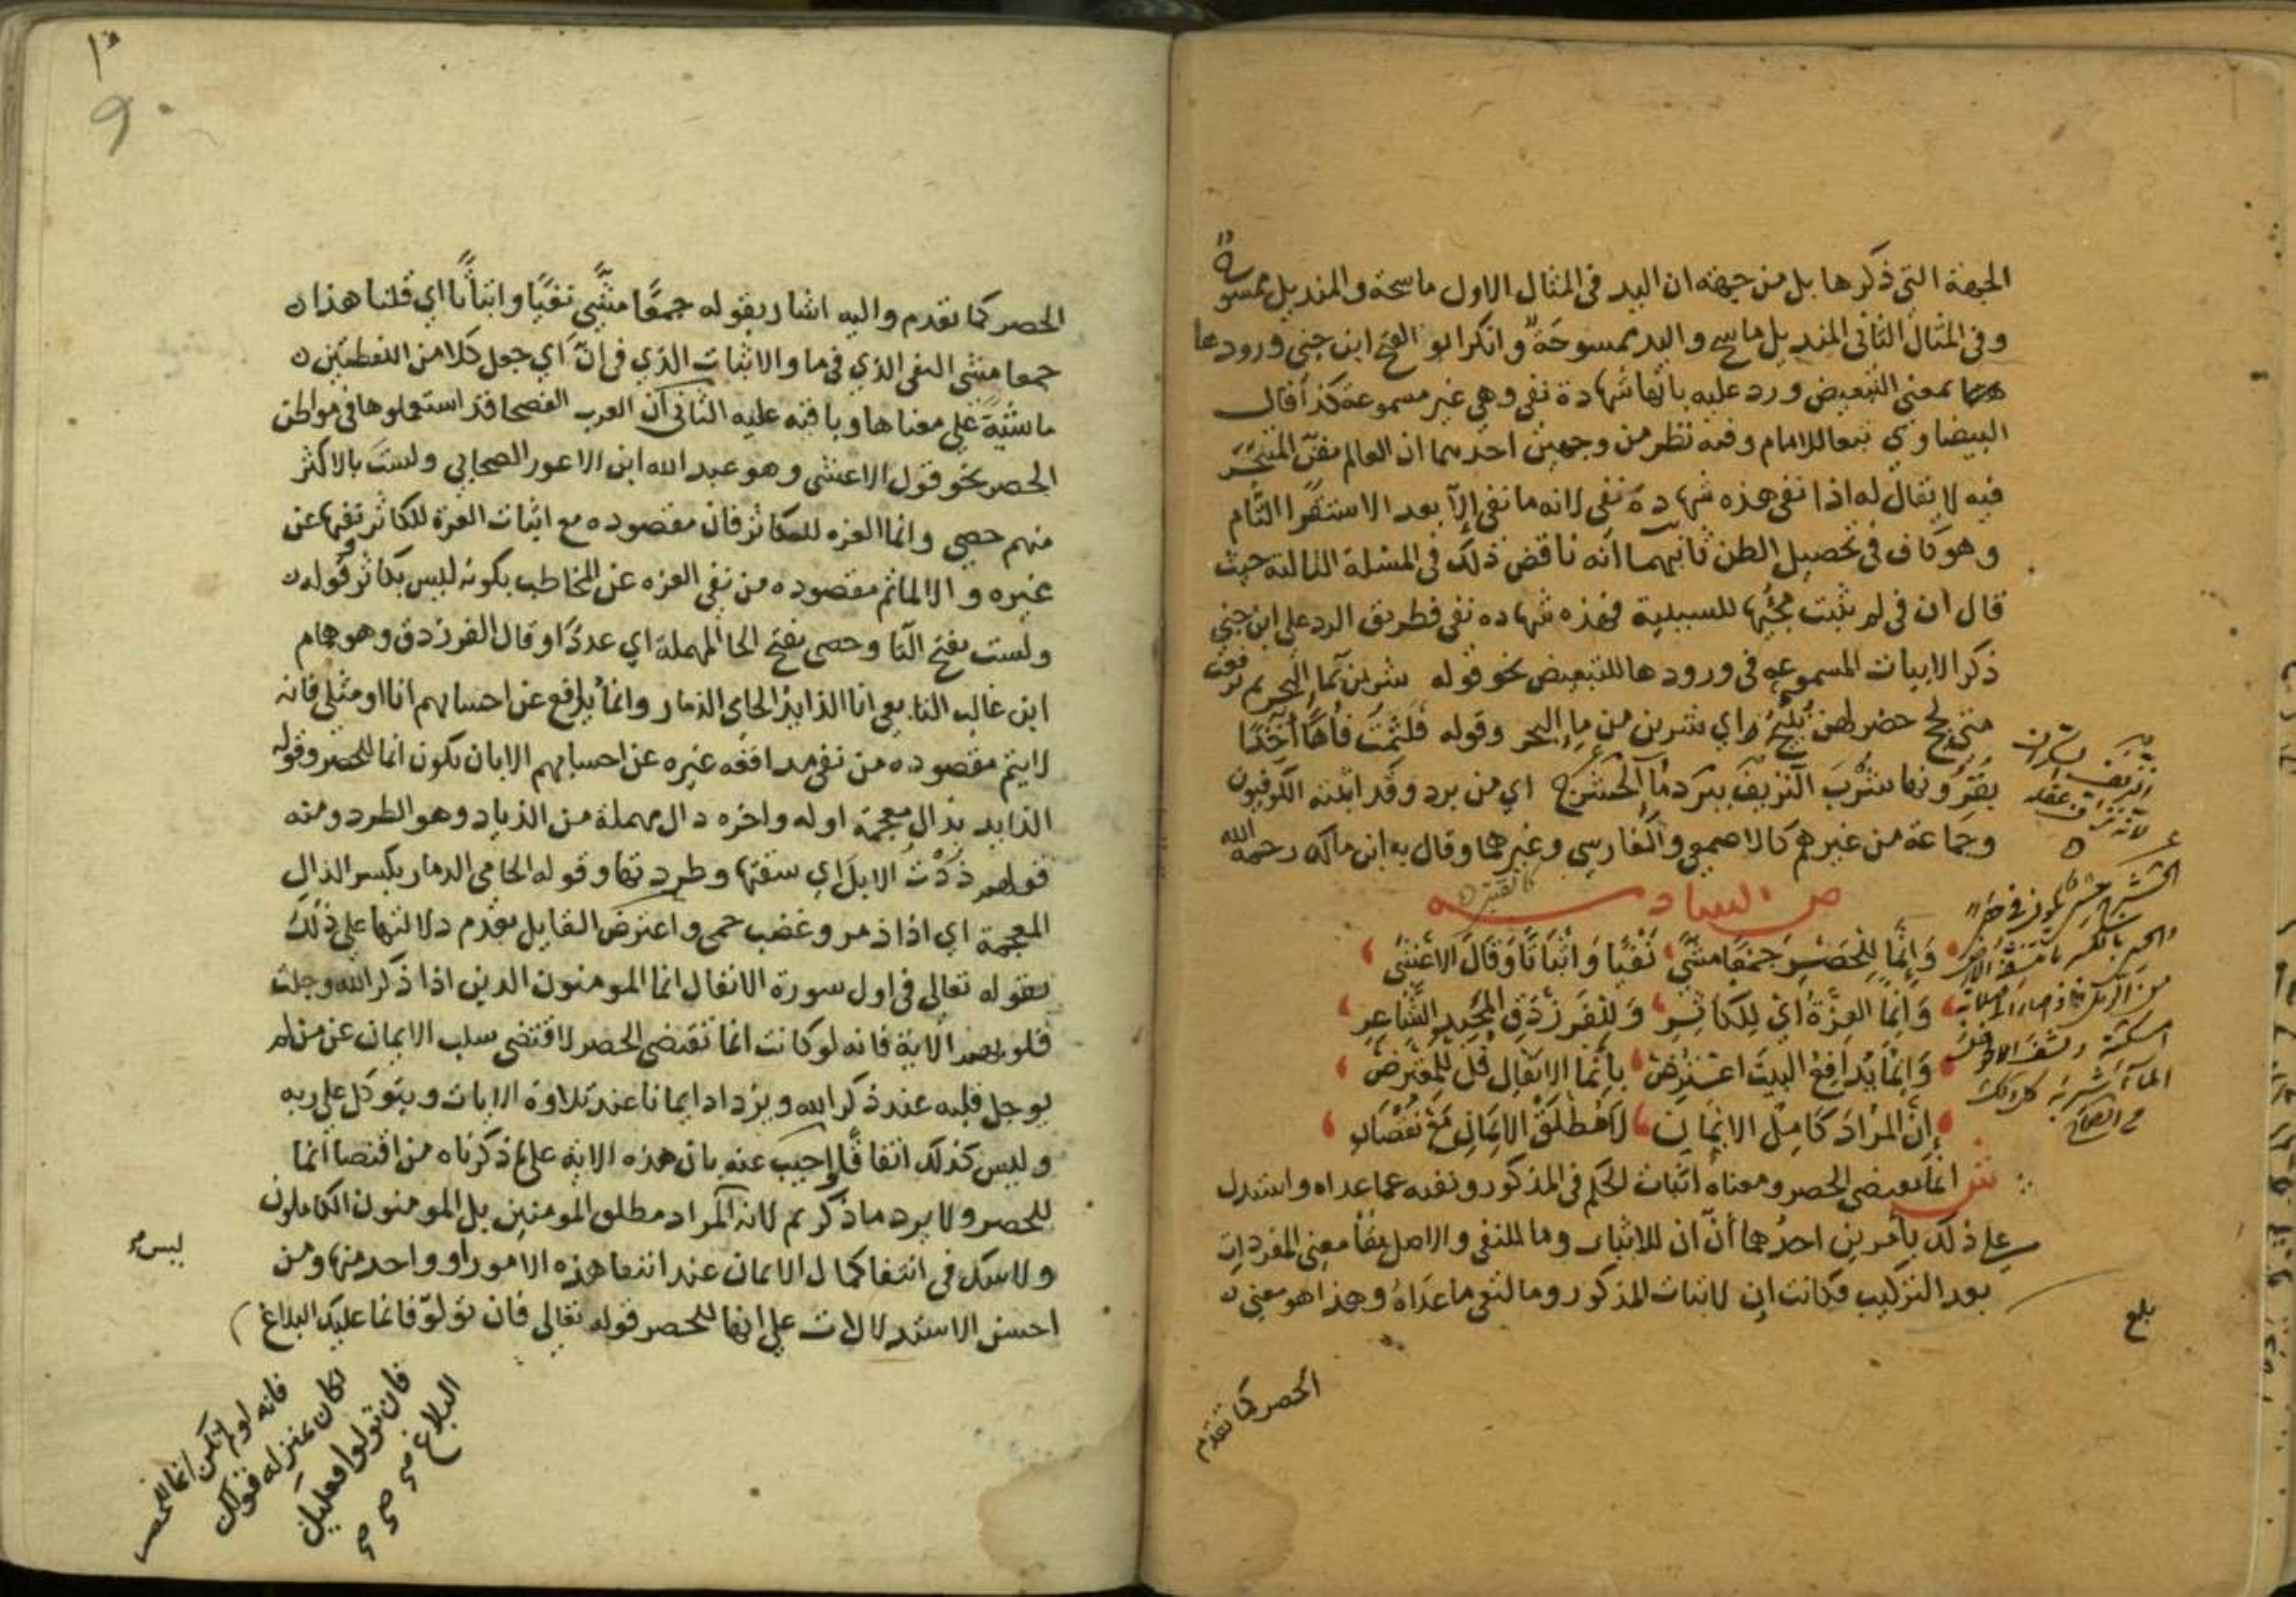 الجهة التي ذكرها بل من جهة ان اليد في المثال الاول ماسحة والمنديل ممسوحة
وفي المثال الثاني المنديل ماسح واليد ممسوحة وانكر ابو الفتح ابن جني ورودها
بمعنى التبعيض ورد عليه بانها شهادة نفي وهي غير مسموعة كذا قال
البيضاوي تبعا للامام وفيه نظر من وجهين احدهما ان العالم بفن المتبحر
فيه لا يقال له اذا نفى هذه شهادة نفي لانه ما نفى إلا بعد الاستقرا التام
وهو كاف في تحصيل الظن ثانيهما انه ناقض ذلك في المسئلة الثالثة حيث
قال ان في لم يثبت مجيئها للسببية فهذه شهاده نفي فطريق الرد على ابن جني
ذكر الابيات المسموعه في ورودها للتبعيض نحو قوله شربن بما البحر ثم ترفعت
متى لجج خضر لهن نئيج اي شربن من ماء البحر وقوله فلثمت فاها آخذا
بقرونها شرب النزيف ببرد ماء الحشرج اي من برد وقد اثبته الكوفيون
وجماعة من غيرهم كالاصمعي والفارسي وغيرهما وقال به ابن مالك رحمه الله
ص السادسه
وإنما للحصر جمعا مثبتي نفيا واثباتا وقال الاعشى
وإنما العزة اي للكاثر وللفرزدق المجيد الشاعر
وإنما يدافع البيت اعترض بإنما الانفال قل للمعترض
إن المراد كامل الايمان لا مطلق الايمان مع نقصان
ش انما يقتضي الحصر ومعناه اثبات الحكم في المذكور ونفيه عما عداه واستدل
على ذلك بأمرين احدهما أن ان للاثبات وما للنفي والاصل بقا معنى المفردات
بعد التركيب فكانت ان لاثبات المذكور وما لنفي ما عداه وهذا هو معنى
الحصر كما تقدم
بلغ
الحصر كما تقدم واليه اشار بقوله جمعا مثبتي نفيا واثباتا اي قلنا هذا
جمعا مثبتي النفي الذي في ما والاثبات الذي في ان اي جعل كلا من اللفظتين
ما شية على معناها وباقيه عليه الثاني ان العرب الفصحا قد استعملوها في مواطن
الحصر نحو قول الاعشى وهو عبد الله ابن الاعور الصحابي ولست بالاكثر
منهم حصى وانما العزه للكاثر فان مقصوده مع اثبات العزة للكاثر نفيها عن
غيره والا لما تم مقصوده من نفي العزه عن المخاطب بكونه ليس بكاثر وقوله
ولست بفتح التا وحصى بفتح الحا المهملة اي عددا وقال الفرزدق وهو همام
ابن غالب التابعي انا الذايد الحامي الذمار وانما يدافع عن احسابهم انا او مثلي فانه
لا يتم مقصوده من نفي مدافعه غيره عن احسابهم الا بان يكون انما للحصر وقوله
الذايد بذال معجمة اوله واخره دال مهملة من الذياد وهو الطرد ومنه
قولهم ذدت الابل اي سقتها وطردتها وقوله الحامي الذمار بكسر الذال
المعجمة اي اذا ذمر وغضب حمى واعترض القايل بعدم دلالتها على ذلك
بقوله تعالى في اول سورة الانفال انما المومنون الذين اذا ذكر الله وجلت
قلوبهم الاية فانه لو كانت انما تقتضي الحصر لاقتضى سلب الايمان عن من لم
يوجل قلبه عند ذكر الله ويزداد ايمانا عند تلاوة الايات ويتوكل على ربه
وليس كذلك اتفاقا واجيب عنه بان هذه الاية على ما ذكرناه من اقتضا انما
للحصر ولا يرد ما ذكرتم لانه المراد مطلق المومنين بل المومنون الكاملون
ليس
ولا شك في انتفا كمال الايمان عند انتفا هذه الامور او واحد منها ومن
احسن الاستدلالات على انها للحصر قوله تعالى فان تولوا فانما عليك البلاغ
فانه لو لم تكن انما للحصر
لكان بمنزلة قولك
فان تولوا فعليك
البلاغ